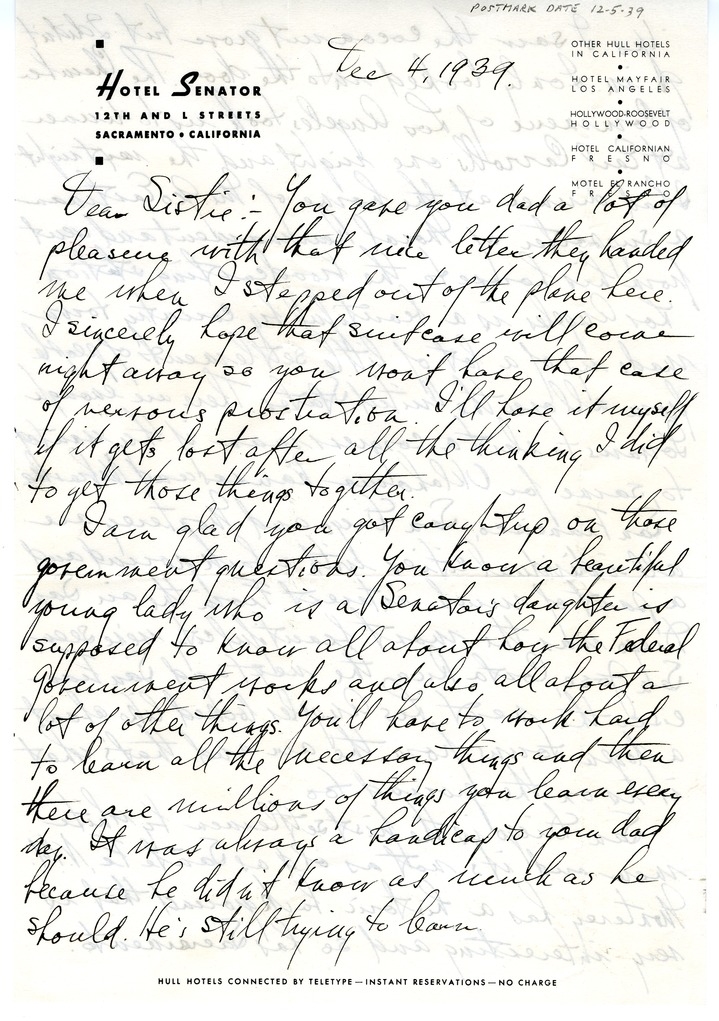 POSTMARK DATE 12-5-39
HOTEL SENATOR
12TH AND L STREETS
SACRAMENTO • CALIFORNIA
OTHER HULL HOTELS
IN CALIFORNIA
HOTEL MAYFAIR
LOS ANGELES
HOLLYWOOD-ROOSEVELT
HOLLYWOOD
HOTEL CALIFORNIAN
FRESNO
MOTEL EL RANCHO
FRESNO
Dec 4, 1939.
Dear Sistie:- You gave you dad a lot of
pleasure with that nice letter they handed
me when I stepped out of the plane here.
I sincerely hope that suitcase will come
right away so you won't have that case
of nervous prostration. I'll have it myself
if it gets lost after all the thinking I did
to get those things together.
I am glad you got caught up on those
government questions. You know a beautiful
young lady who is a Senator's daughter is
supposed to know all about how the Federal
Government works and also all about a
lot of other things. You'll have to work hard
to learn all the necessary things and then
there are millions of things you learn every
day. It was always a handicap to your dad
because he didn't know as much as he
should. He's still trying to learn.
HULL HOTELS CONNECTED BY TELETYPE—INSTANT RESERVATIONS—NO CHARGE